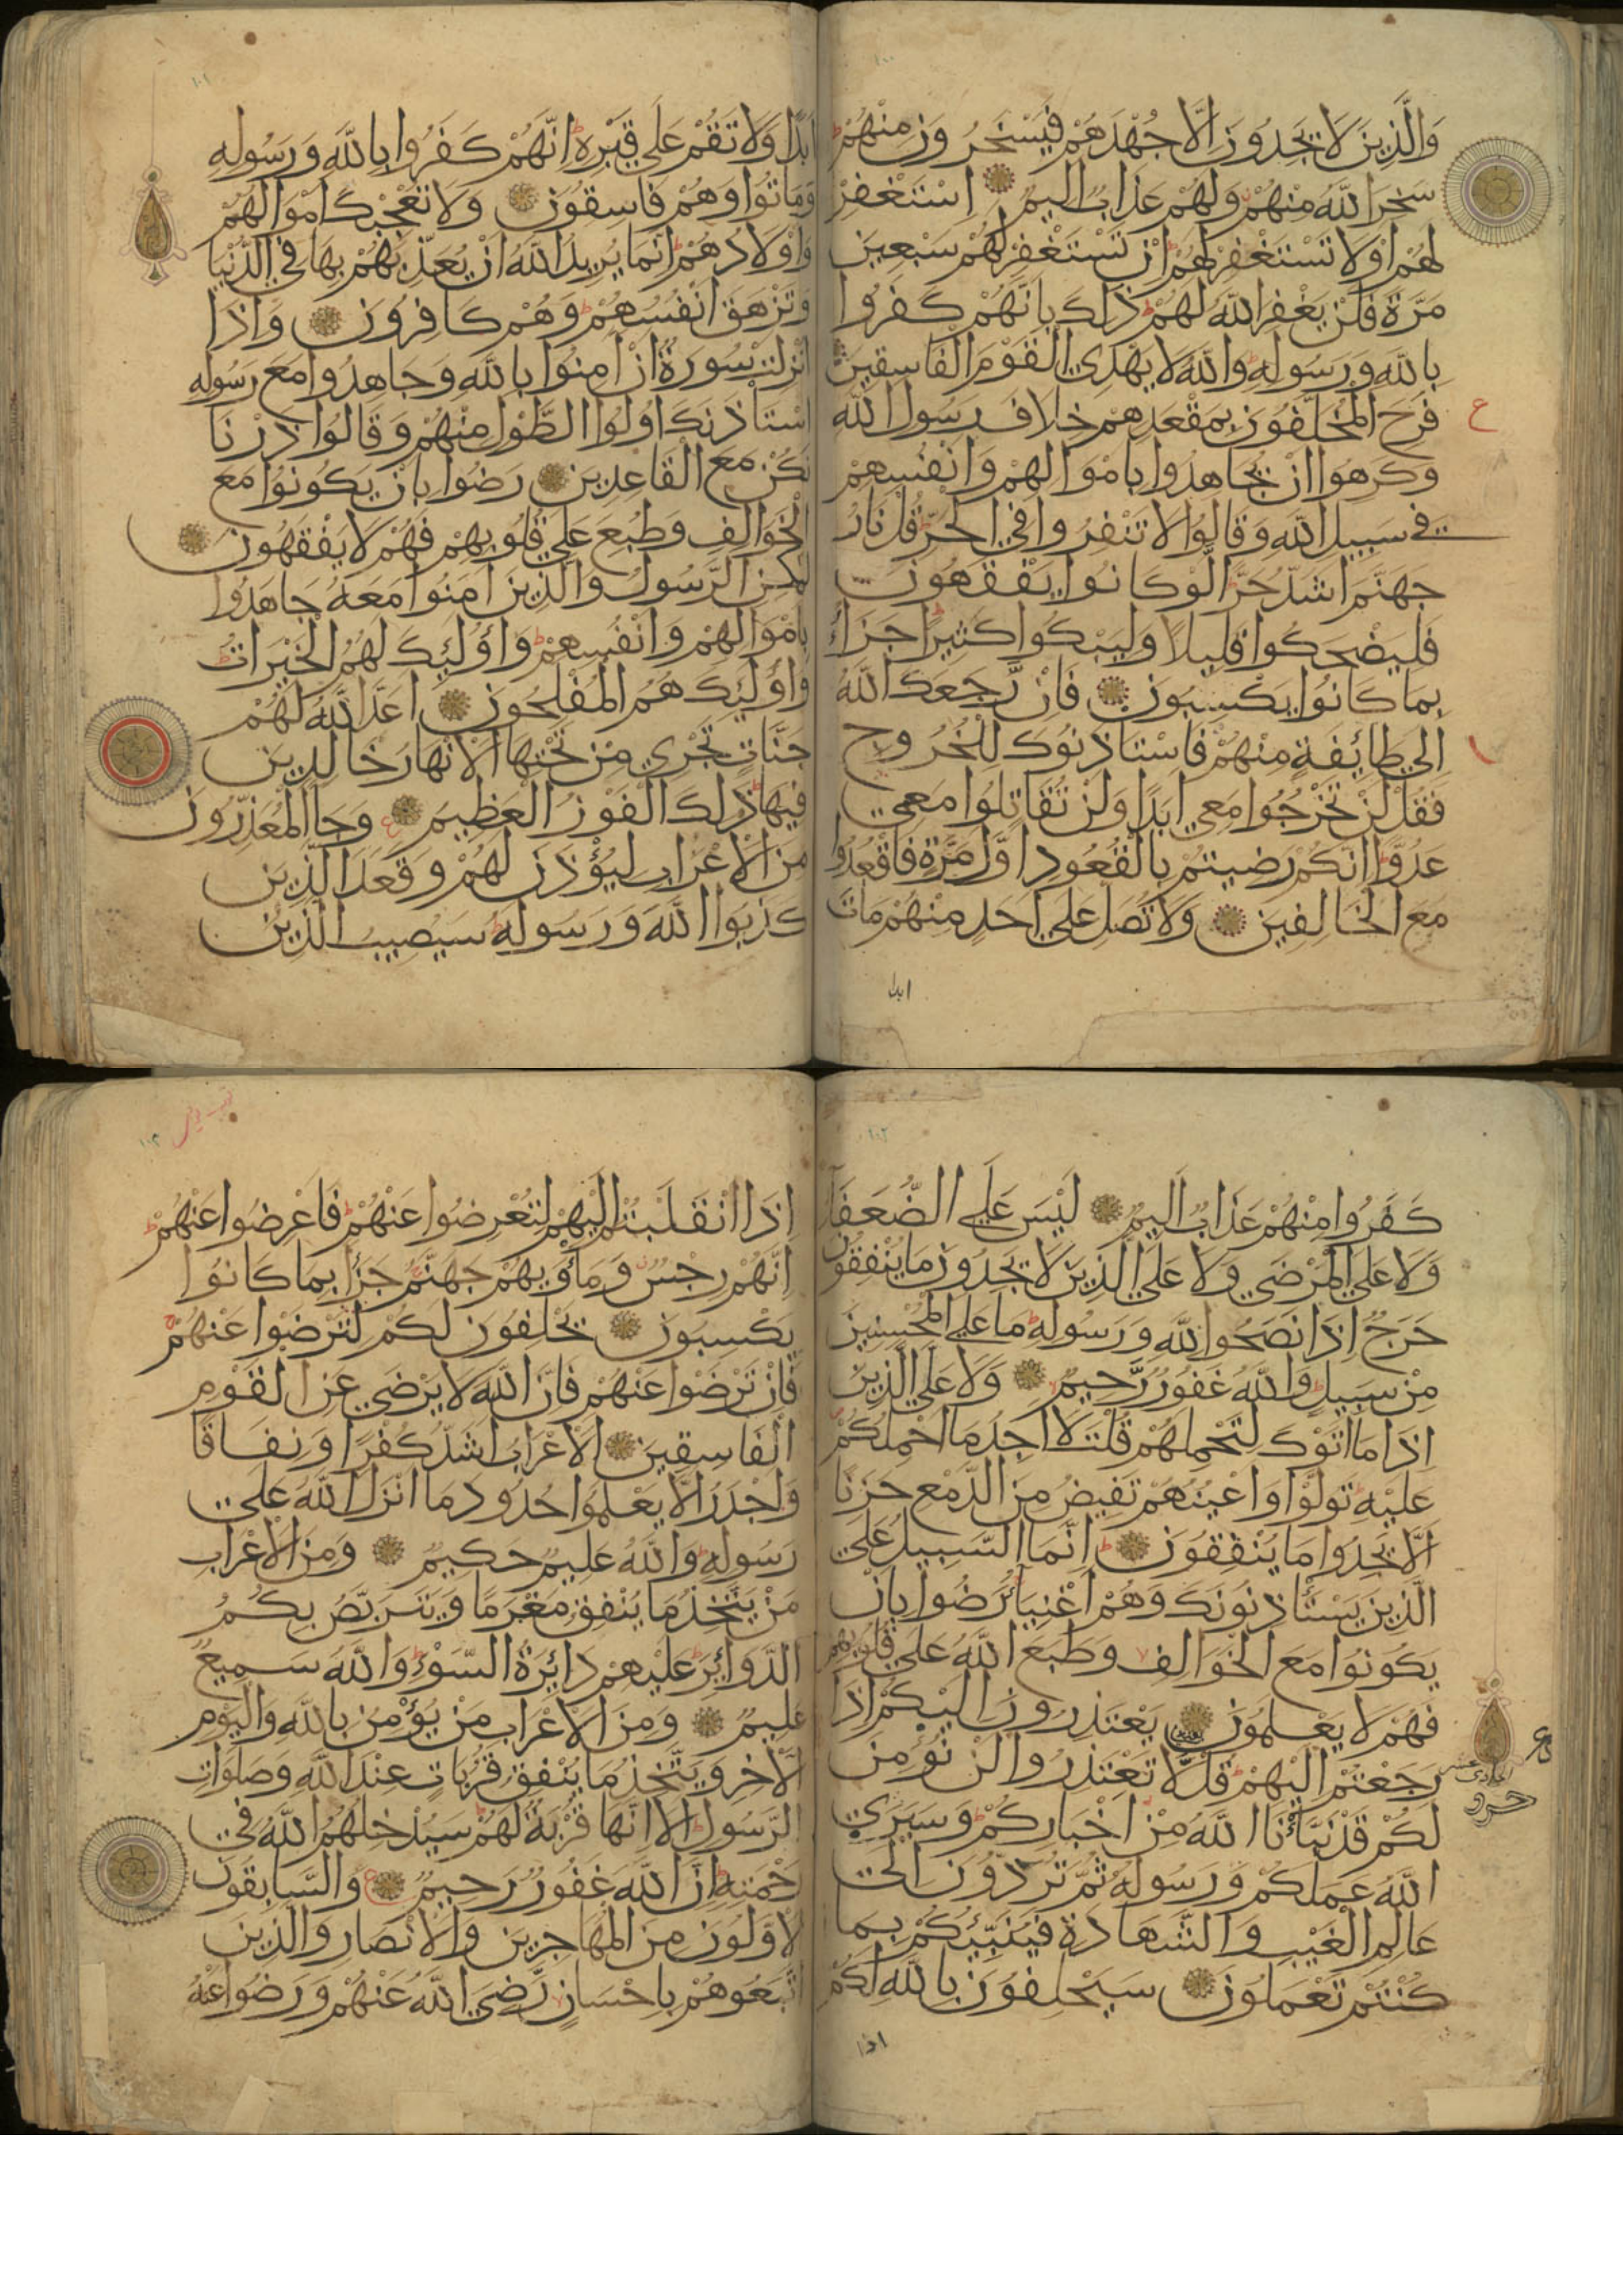 وَالَّذِينَ لَا يَجِدُونَ اِلَّا جُهْدَهُمْ فَيَسْخَرُونَ مِنْهُمْ
سَخِرَ اللّٰهُ مِنْهُمْ وَلَهُمْ عَذَابٌ اَلِيمٌ اِسْتَغْفِرْ
لَهُمْ اَوْ لَا تَسْتَغْفِرْ لَهُمْ اِنْ تَسْتَغْفِرْ لَهُمْ سَبْعِينَ
مَرَّةً فَلَنْ يَغْفِرَ اللّٰهُ لَهُمْ ذٰلِكَ بِاَنَّهُمْ كَفَرُوا
بِاللّٰهِ وَرَسُولِهِ وَاللّٰهُ لَا يَهْدِي الْقَوْمَ الْفَاسِقِينَ
فَرِحَ الْمُخَلَّفُونَ بِمَقْعَدِهِمْ خِلَافَ رَسُولِ اللّٰهِ
وَكَرِهُوا اَنْ يُجَاهِدُوا بِاَمْوَالِهِمْ وَاَنْفُسِهِمْ
فِي سَبِيلِ اللّٰهِ وَقَالُوا لَا تَنْفِرُوا فِي الْحَرِّ قُلْ نَارُ
جَهَنَّمَ اَشَدُّ حَرًّا لَوْ كَانُوا يَفْقَهُونَ
فَلْيَضْحَكُوا قَلِيلًا وَلْيَبْكُوا كَثِيرًا جَزَاءً
بِمَا كَانُوا يَكْسِبُونَ فَاِنْ رَجَعَكَ اللّٰهُ
اِلٰي طَائِفَةٍ مِنْهُمْ فَاسْتَاْذَنُوكَ لِلْخُرُوجِ
فَقُلْ لَنْ تَخْرُجُوا مَعِيَ اَبَدًا وَلَنْ تُقَاتِلُوا مَعِيَ
عَدُوًّا اِنَّكُمْ رَضِيتُمْ بِالْقُعُودِ اَوَّلَ مَرَّةٍ فَاقْعُدُوا
مَعَ الْخَالِفِينَ وَلَا تُصَلِّ عَلٰي اَحَدٍ مِنْهُمْ مَاتَ
ابدا
اَبَدًا وَلَا تَقُمْ عَلٰي قَبْرِهِ اِنَّهُمْ كَفَرُوا بِاللّٰهِ وَرَسُولِهِ
وَمَاتُوا وَهُمْ فَاسِقُونَ وَلَا تُعْجِبْكَ اَمْوَالُهُمْ
وَاَوْلَادُهُمْ اِنَّمَا يُرِيدُ اللّٰهُ اَنْ يُعَذِّبَهُمْ بِهَا فِي الدُّنْيَا
وَتَزْهَقَ اَنْفُسُهُمْ وَهُمْ كَافِرُونَ وَاِذَا
اُنْزِلَتْ سُورَةٌ اَنْ اٰمِنُوا بِاللّٰهِ وَجَاهِدُوا مَعَ رَسُولِهِ
اسْتَاْذَنَكَ اُولُوا الطَّوْلِ مِنْهُمْ وَقَالُوا ذَرْنَا
نَكُنْ مَعَ الْقَاعِدِينَ رَضُوا بِاَنْ يَكُونُوا مَعَ
الْخَوَالِفِ وَطُبِعَ عَلٰي قُلُوبِهِمْ فَهُمْ لَا يَفْقَهُونَ
لٰكِنِ الرَّسُولُ وَالَّذِينَ اٰمَنُوا مَعَهُ جَاهَدُوا
بِاَمْوَالِهِمْ وَاَنْفُسِهِمْ وَاُولٰئِكَ لَهُمُ الْخَيْرَاتُ
وَاُولٰئِكَ هُمُ الْمُفْلِحُونَ اَعَدَّ اللّٰهُ لَهُمْ
جَنَّاتٍ تَجْرِي مِنْ تَحْتِهَا الْاَنْهَارُ خَالِدِينَ
فِيهَا ذٰلِكَ الْفَوْزُ الْعَظِيمُ وَجَاءَ الْمُعَذِّرُونَ
مِنَ الْاَعْرَابِ لِيُؤْذَنَ لَهُمْ وَقَعَدَ الَّذِينَ
كَذَبُوا اللّٰهَ وَرَسُولَهُ سَيُصِيبُ الَّذِينَ
كَفَرُوا مِنْهُمْ عَذَابٌ اَلِيمٌ لَيْسَ عَلَي الضُّعَفَاءِ
وَلَا عَلَي الْمَرْضٰي وَلَا عَلَي الَّذِينَ لَا يَجِدُونَ مَا يُنْفِقُونَ
حَرَجٌ اِذَا نَصَحُوا لِلّٰهِ وَرَسُولِهِ مَا عَلَي الْمُحْسِنِينَ
مِنْ سَبِيلٍ وَاللّٰهُ غَفُورٌ رَّحِيمٌ وَلَا عَلَي الَّذِينَ
اِذَا مَا اَتَوْكَ لِتَحْمِلَهُمْ قُلْتَ لَا اَجِدُ مَا اَحْمِلُكُمْ
عَلَيْهِ تَوَلَّوْا وَاَعْيُنُهُمْ تَفِيضُ مِنَ الدَّمْعِ حَزَنًا
اَلَّا يَجِدُوا مَا يُنْفِقُونَ اِنَّمَا السَّبِيلُ عَلَي
الَّذِينَ يَسْتَاْذِنُونَكَ وَهُمْ اَغْنِيَاءُ رَضُوا بِاَنْ
يَكُونُوا مَعَ الْخَوَالِفِ وَطَبَعَ اللّٰهُ عَلٰي قُلُوبِهِمْ
فَهُمْ لَا يَعْلَمُونَ يَعْتَذِرُونَ اِلَيْكُمْ اِذَا
رَجَعْتُمْ اِلَيْهِمْ قُلْ لَّا تَعْتَذِرُوا لَنْ نُؤْمِنَ
لَكُمْ قَدْ نَبَّاَنَا اللّٰهُ مِنْ اَخْبَارِكُمْ وَسَيَرَي
اللّٰهُ عَمَلَكُمْ وَرَسُولُهُ ثُمَّ تُرَدُّونَ اِلٰي
عَالِمِ الْغَيْبِ وَالشَّهَادَةِ فَيُنَبِّئُكُمْ بِمَا
كُنْتُمْ تَعْمَلُونَ سَيَحْلِفُونَ بِاللّٰهِ لَكُمْ
اذا
اِذَا انْقَلَبْتُمْ اِلَيْهِمْ لِتُعْرِضُوا عَنْهُمْ فَاَعْرِضُوا عَنْهُمْ
اِنَّهُمْ رِجْسٌ وَمَاْوٰيهُمْ جَهَنَّمُ جَزَاءً بِمَا كَانُوا
يَكْسِبُونَ يَحْلِفُونَ لَكُمْ لِتَرْضَوْا عَنْهُمْ
فَاِنْ تَرْضَوْا عَنْهُمْ فَاِنَّ اللّٰهَ لَا يَرْضٰي عَنِ الْقَوْمِ
الْفَاسِقِينَ اَلْاَعْرَابُ اَشَدُّ كُفْرًا وَنِفَاقًا
وَاَجْدَرُ اَلَّا يَعْلَمُوا حُدُودَ مَا اَنْزَلَ اللّٰهُ عَلٰي
رَسُولِهِ وَاللّٰهُ عَلِيمٌ حَكِيمٌ وَمِنَ الْاَعْرَابِ
مَنْ يَتَّخِذُ مَا يُنْفِقُ مَغْرَمًا وَيَتَرَبَّصُ بِكُمُ
الدَّوَائِرَ عَلَيْهِمْ دَائِرَةُ السَّوْءِ وَاللّٰهُ سَمِيعٌ
عَلِيمٌ وَمِنَ الْاَعْرَابِ مَنْ يُؤْمِنُ بِاللّٰهِ وَالْيَوْمِ
الْاٰخِرِ وَيَتَّخِذُ مَا يُنْفِقُ قُرُبَاتٍ عِنْدَ اللّٰهِ وَصَلَوَاتِ
الرَّسُولِ اَلَا اِنَّهَا قُرْبَةٌ لَهُمْ سَيُدْخِلُهُمُ اللّٰهُ فِي
رَحْمَتِهِ اِنَّ اللّٰهَ غَفُورٌ رَحِيمٌ وَالسَّابِقُونَ
الْاَوَّلُونَ مِنَ الْمُهَاجِرِينَ وَالْاَنْصَارِ وَالَّذِينَ
اتَّبَعُوهُمْ بِاِحْسَانٍ رَّضِيَ اللّٰهُ عَنْهُمْ وَرَضُوا عَنْهُ